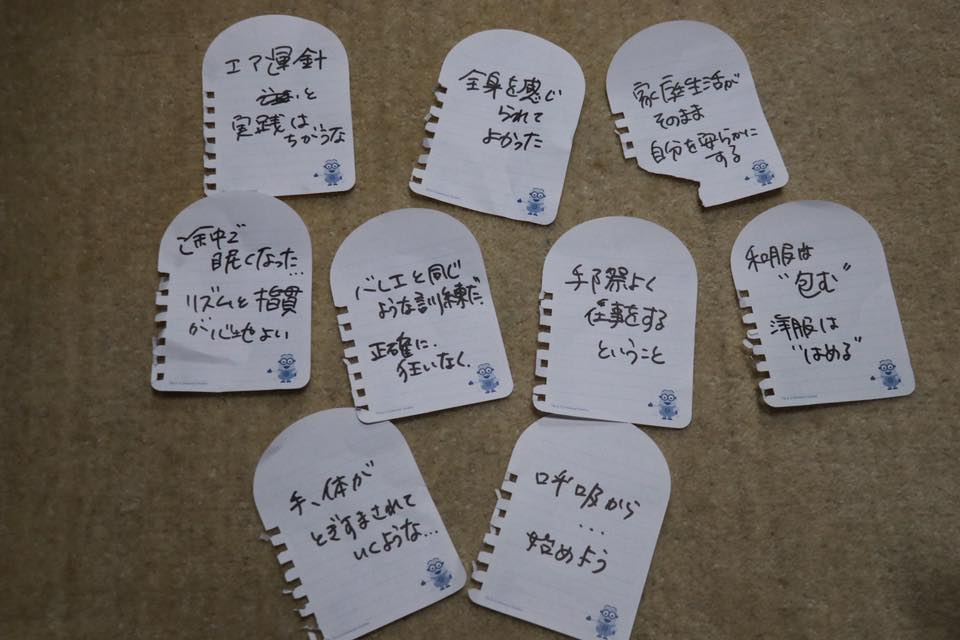 エア運針
と
実践は
ちがうな
全身を感じ
られて
よかった
家庭生活が
そのまま
自分を安らかに
する
途中で
眠くなった…
リズムと習慣
が心地よい
バレエと同じ
ような訓練だ
正確に、
狂いなく、
手際よく
仕事をする
ということ
和服は
“包む”
洋服は
“はめる”
手、体が
とぎすまされて
いくような…
呼吸から
…
始めよう